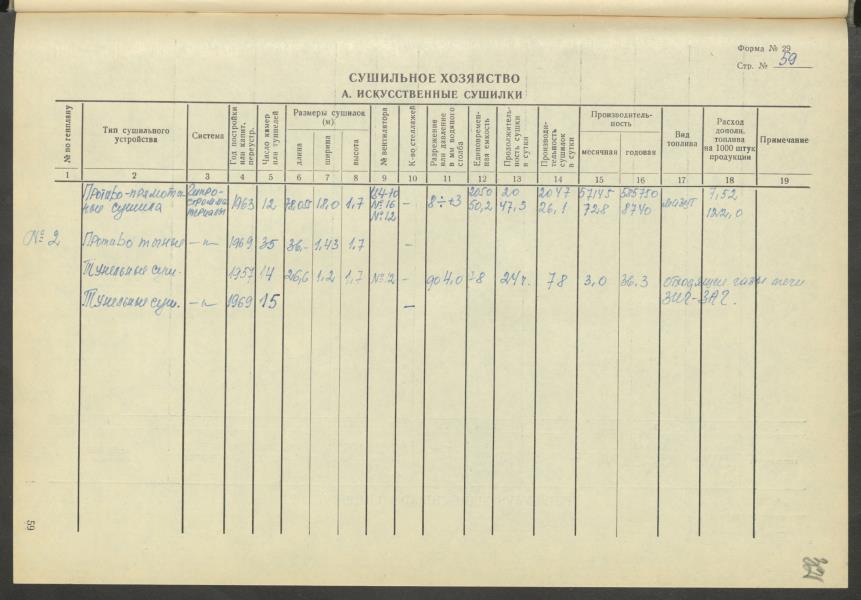 Форма № 29
Стр. № 59
СУШИЛЬНОЕ ХОЗЯЙСТВО
А. ИСКУССТВЕННЫЕ СУШИЛКИ
№ по генплану
Тип сушильного устройства
Система
Год постройки или капит. переустр.
Число камер или туннелей
Размеры сушилок (м)
длина
ширина
высота
№ вентилятора
К-во стеллажей
Разрежение или давление в мм водяного столба
Единовременная емкость
Продолжительность сушки в сутки
Производительность сушилок в сутки
Производительность
месячная
годовая
Вид топлива
Расход дополн. топлива на 1000 штук продукции
Примечание
1 2 3 4 5 6 7 8 9 10 11 12 13 14 15 16 17 18 19
1963 12 18,0 1,7 № 16 – 8÷+3 2050 20 2047 57145 585750 мазут 7,52
ные сушила № 12 50,2 47,3 26,1 72,8 8740 122,0
№ 2 –"– 1969 35 36,- 1,43 1,7 –
1957 14 26,6 1,2 1,7 № 12 – до 4,0 78 24 ч. 78 3,0 36.3 отходящие газы печи
Тунельные суш. –"– 1969 15 –
59